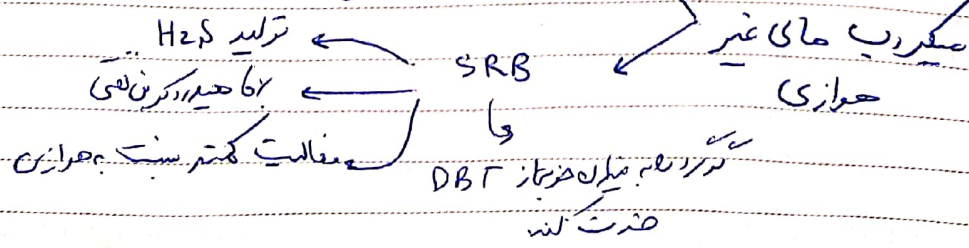 میکروب های غیر هوازی
SRB
تولید H2S
بقا هیدروکربن نفتی
فعالیت کمتر نسبت به هوازی
گوگرد را به میزان خوبی از DBT
حذف کند